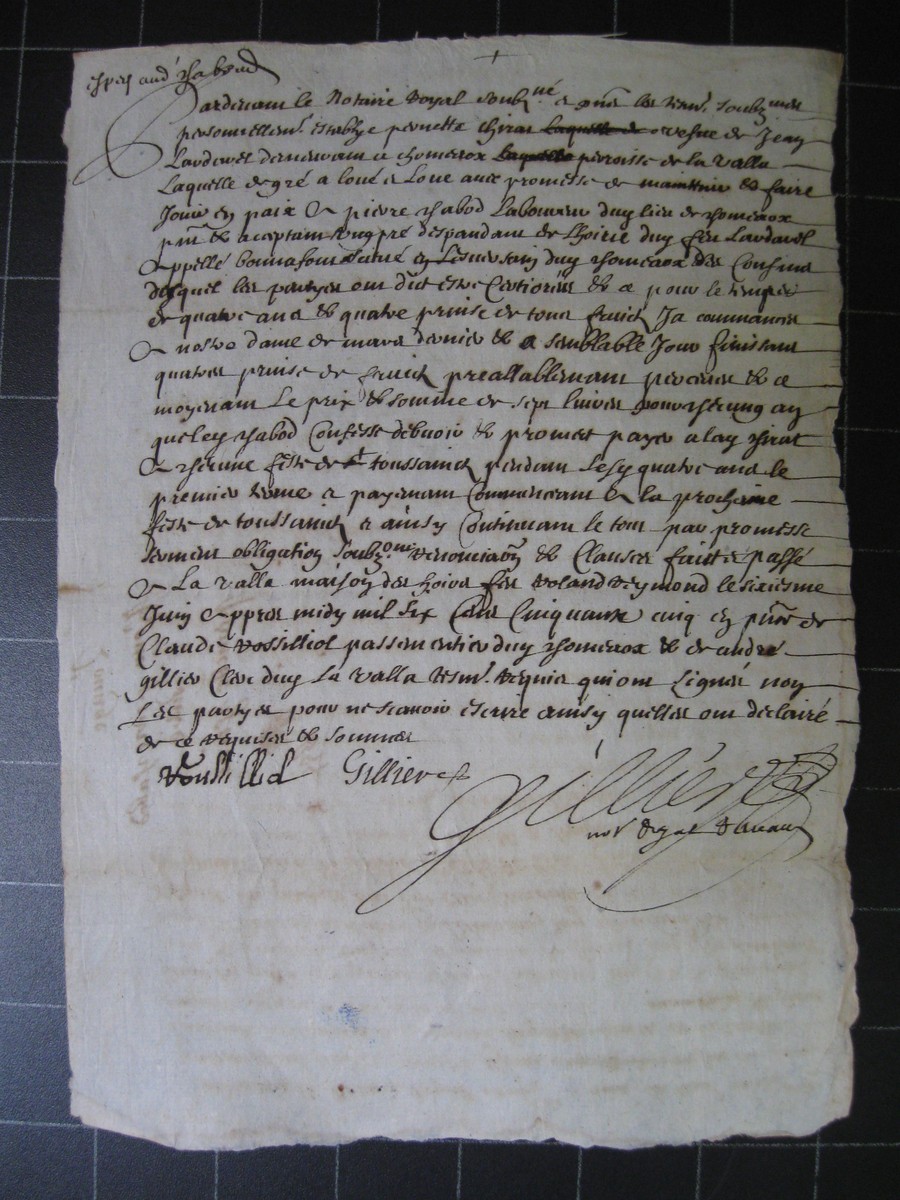 Pardevant le Notaire Royal soubz.né & présens les tesm. soubz
personnellem. establye pernette chirat laquelle de vefve de Jean
parroisse de la valla
Laquelle de gré a loué & Loue avec promesse de maintenir & faire
Jouir en paix A pierre chabod Laboureur duy lieu de chomeaux
pnt & acaptant ung pré despandant de Lhoirie duy feu
Appellé situé duy chomeaux des Confins
duquel les partyes ont dict estre Certiorées & ce pour le temps
de quatre ans & quatre prinse de tous fruicts Ja commancés
A nostre dame de mars dernier & a semblable Jour finissant
quatres prinse de fruicts preallablement perceues & ce
moyenant Le prix & somme de sept livres pour chescung an
que ley chabod Confesse debvoir & promect payer a lay chirat
A chescune feste de toussaincts pendant Lesy quatre ans le
premier terme & payemant Commenceant A la prochaine
feste de toussaincts & ainsy Continuant le tout par promesse
serment obligation soubz.on renonciaon & Clauses faict & passé
A La valla maison des hoirs feu Roland Reymond le sixiesme
Juin Appres midy mil six Cens Cinquante cinq en pnce de
Claude passementier duy chomeaux & de andré
gillier Clerc duy La valla tesm. requis qui ont signés non
Les partyes pour ne scavoir escrire ainsy quelles ont déclairé
de ce requises & sommées
Gillier
Gillier
not Royal